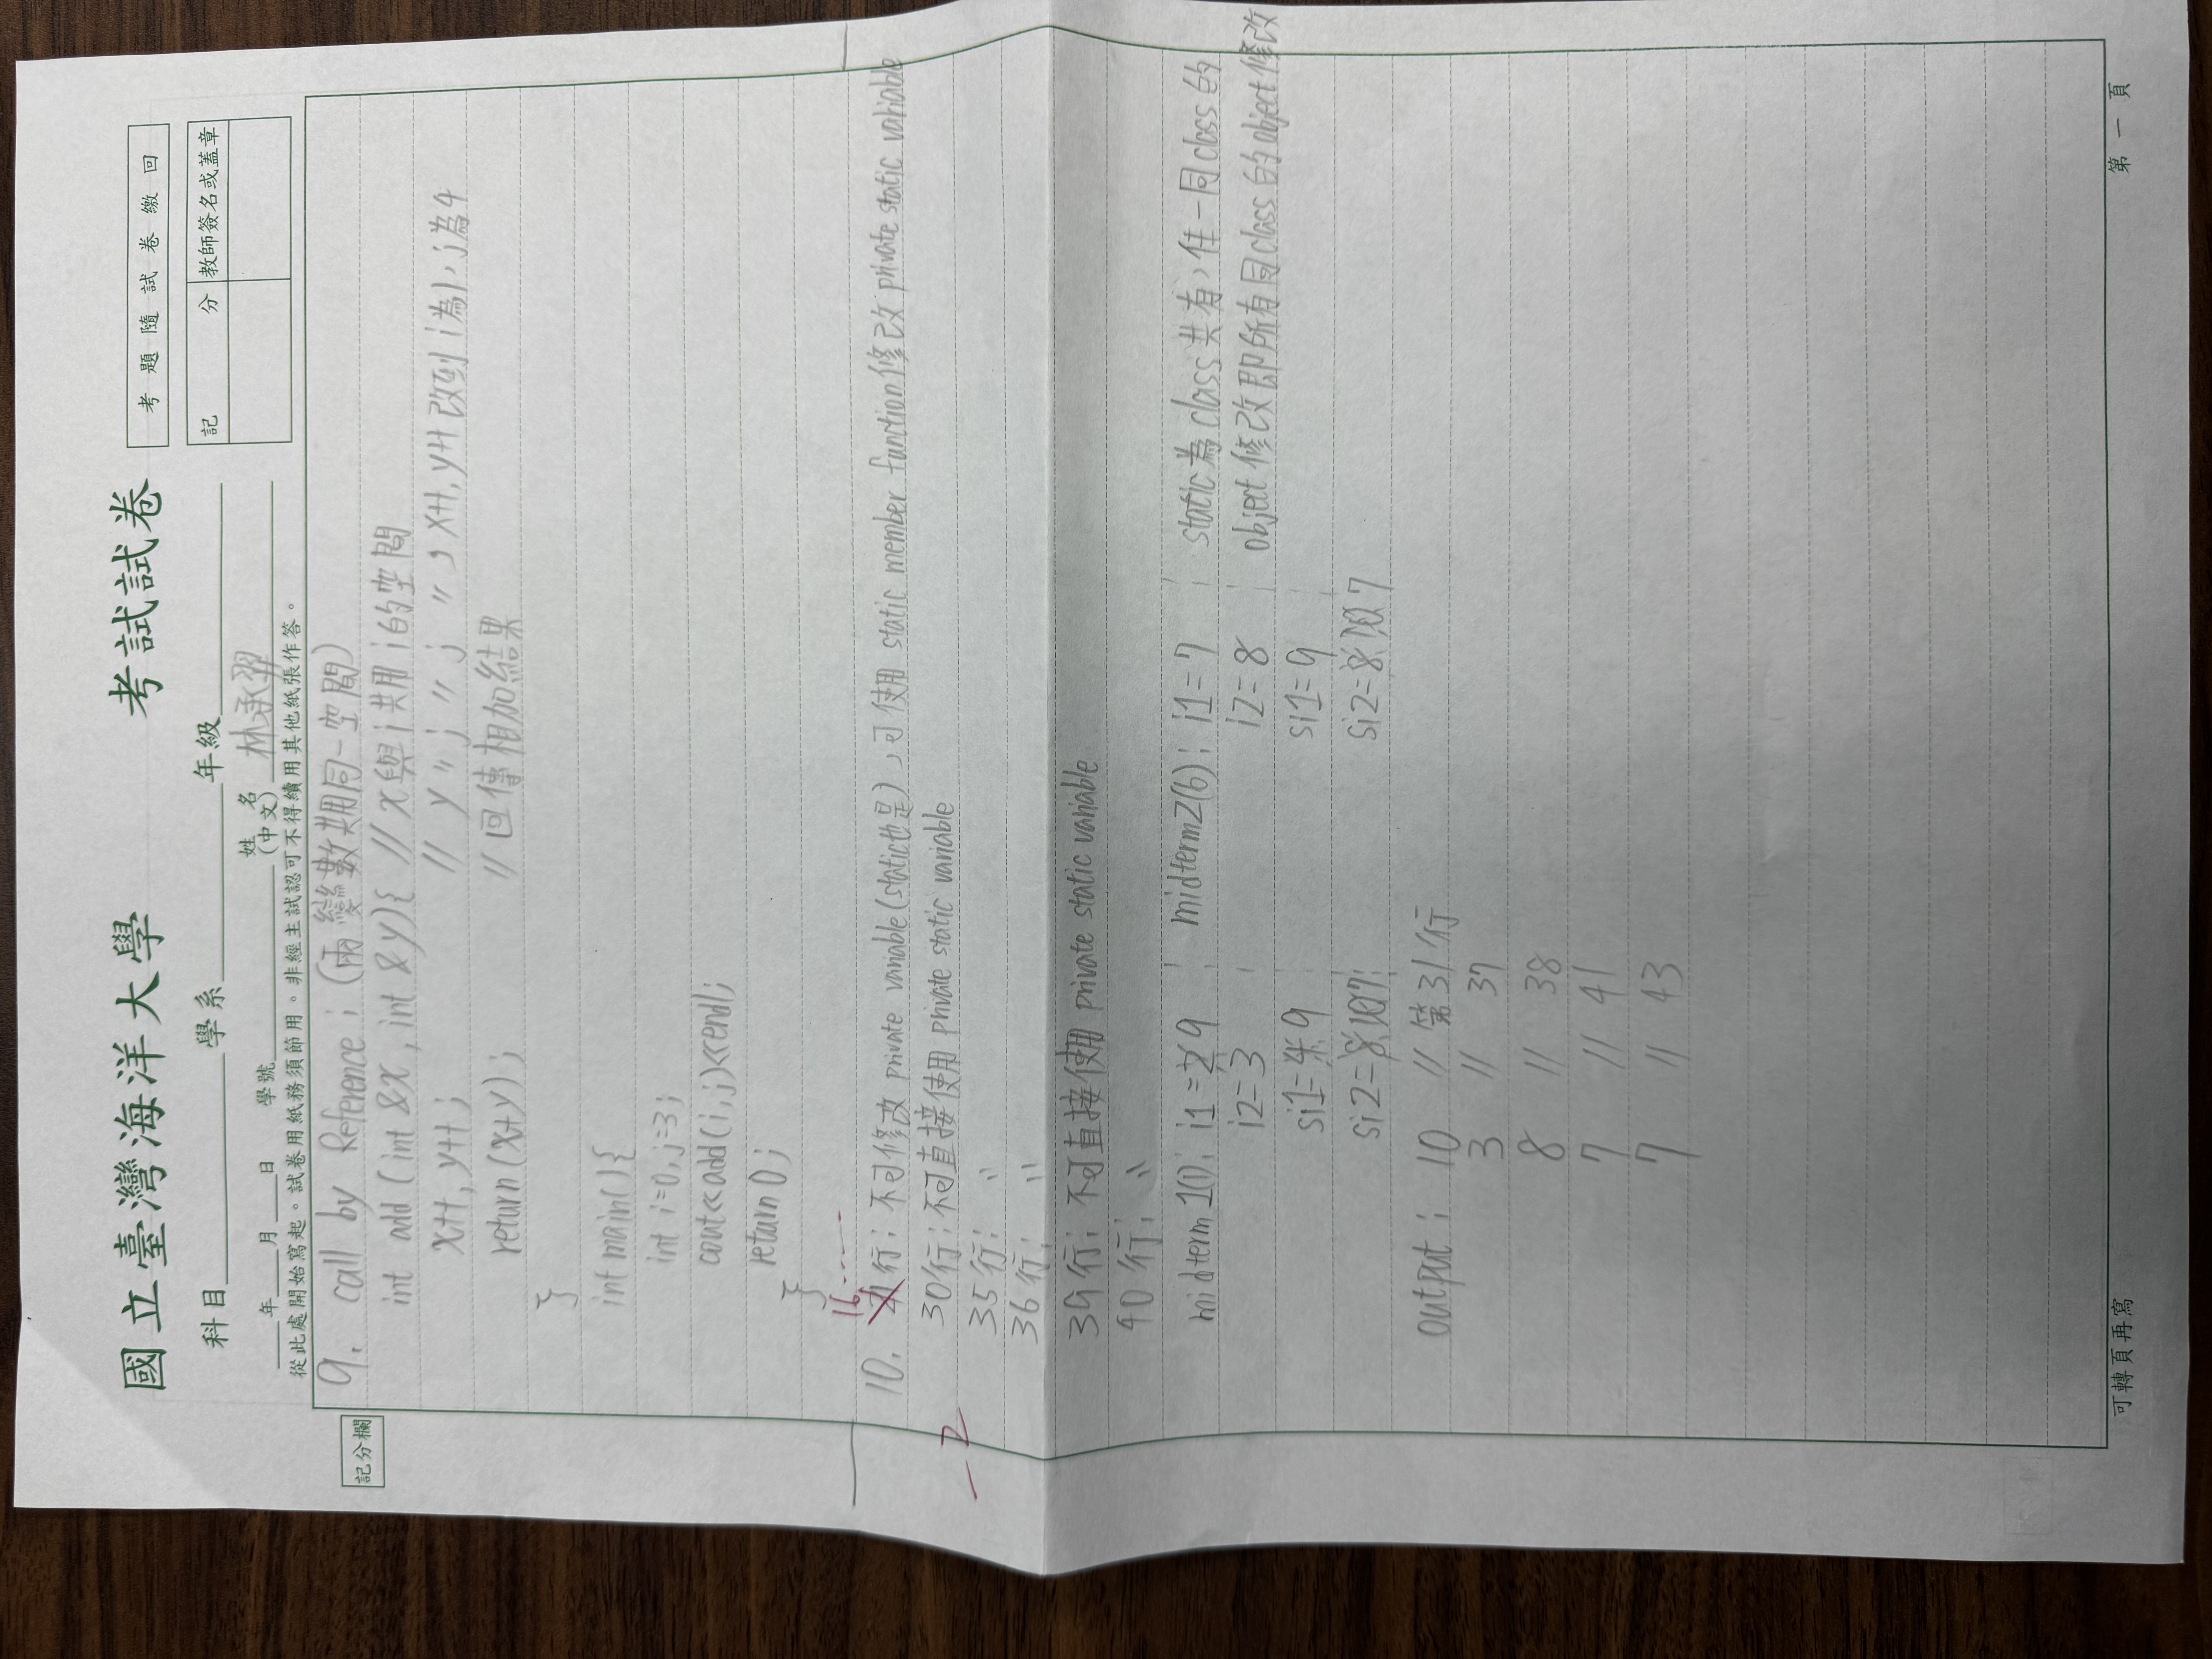 國立臺灣海洋大學 考試試卷 考題隨試卷繳回
科目 學系 年級 記分 教師簽名或蓋章
年 月 日 學號 姓名(中文) 林承羿
從此處開始寫起。試卷用紙務須節用。非經主試認可不得續用其他紙張作答。
記分欄
9. call by Reference : (兩變數共用同一空間)
int add (int &x, int &y){ // x與i共用i的空間
x++, y++; // y〃j〃j〃,x++, y++改到i為1,j為4
return (x+y); // 回傳相加結果
}
int main(){
int i=0, j=3;
cout<<add(i,j)<<endl;
return 0;
}
16
10. 行: 不可修改 private variable(static也是),可使用 static member function修改 private static variable
30行: 不可直接使用 private static variable
-2
35行: 〃
36行: 〃
39行: 不可直接使用 private static variable
40行: 〃
midterm1(1): i1=2 9 midterm2(6): i1=7 static為class共有,任一同class的
i2=3 i2=8 object修改即所有同class的object修改
si1=4 9 si1=9
si2=8 10 7 si2=8 10 7
output: 10 // 第31行
3 // 37
8 // 38
7 // 41
7 // 43
可轉頁再寫 第一頁